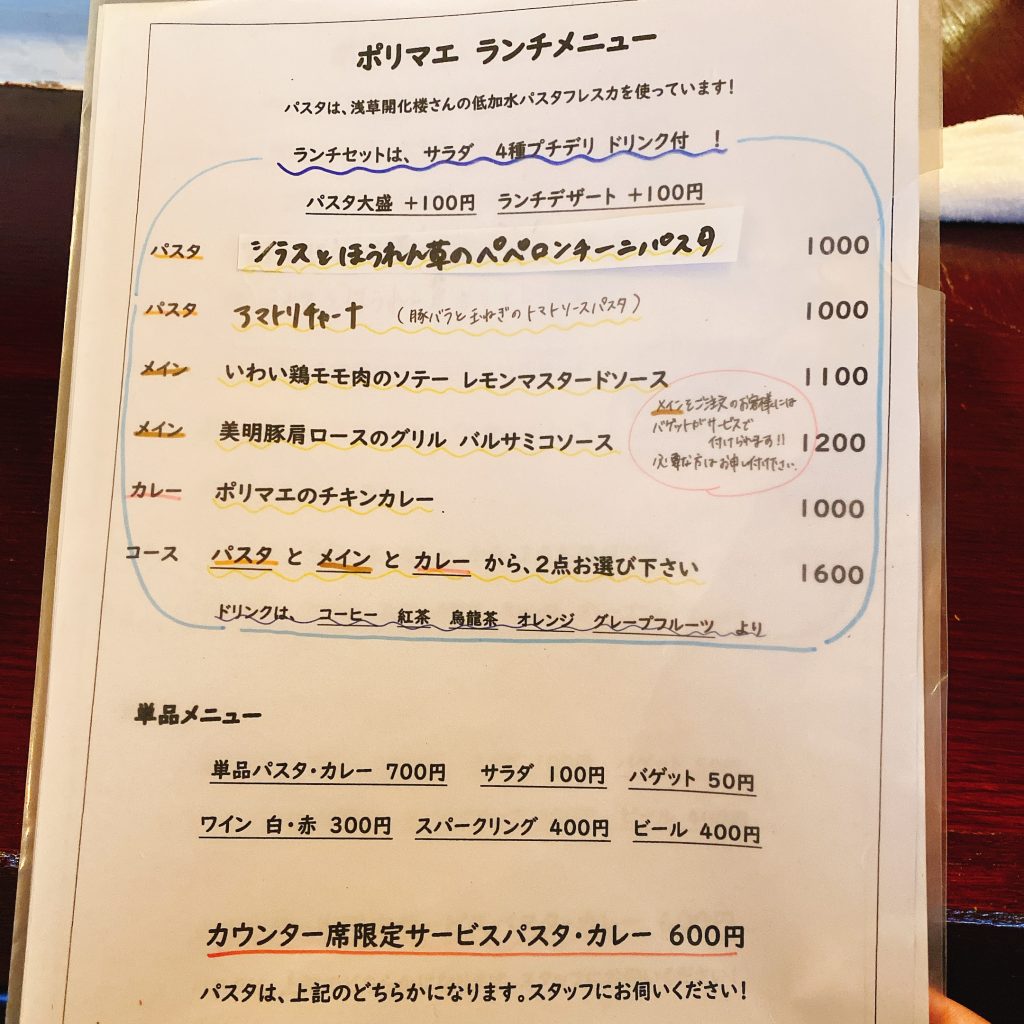 ポリマエ ランチメニュー
パスタは、浅草開化楼さんの低加水パスタフレスカを使っています！
ランチセットは、サラダ 4種プチデリ ドリンク付 ！
パスタ大盛 +100円 ランチデザート +100円
パスタ シラスとほうれん草のペペロンチーニパスタ 1000
パスタ アマトリチャーナ (豚バラと玉ねぎのトマトソースパスタ) 1000
メイン いわい鶏モモ肉のソテー レモンマスタードソース 1100
メインをご注文のお客様には
バゲットがサービスで
付けられます!!
必要な方はお申し付け下さい。
メイン 美明豚肩ロースのグリル バルサミコソース 1200
カレー ポリマエのチキンカレー 1000
コース パスタ と メイン と カレー から、2点お選び下さい 1600
ドリンクは、 コーヒー 紅茶 烏龍茶 オレンジ グレープフルーツ より
単品メニュー
単品パスタ・カレー 700円 サラダ 100円 バゲット 50円
ワイン 白・赤 300円 スパークリング 400円 ビール 400円
カウンター席限定サービスパスタ・カレー 600円
パスタは、上記のどちらかになります。スタッフにお伺いください！